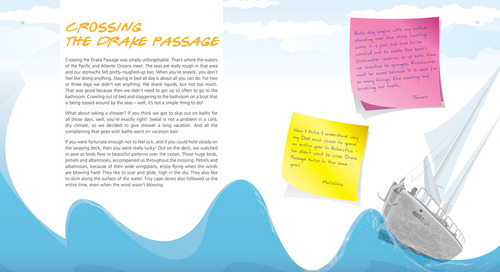 CROSSING
THE DRAKE PASSAGE
Crossing the Drake Passage was simply unforgettable. That's where the waters
of the Pacific and Atlantic Oceans meet. The seas are really rough in that area
and our stomachs felt pretty roughed-up too. When you're seasick, you don't
feel like doing anything. Staying in bed all day is about all you can do. For two
or three days we didn't eat anything. We drank liquids, but not too much.
That was good because then we didn't need to get up so often to go to the
bathroom. Crawling out of bed and staggering to the bathroom on a boat that
is being tossed around by the seas – well, it's not a simple thing to do!
What about taking a shower? If you think we got to skip out on baths for
all those days, well, you're exactly right! Sweat is not a problem in a cold,
dry climate, so we decided to give shower a long vacation. And all the
complaining that goes with baths went on vacation too!
If you were fortunate enough not to feel sick, and if you could hold steady on
the swaying deck, then you were really lucky! Out on the deck, we watched
in awe as birds flew in beautiful patterns over the ocean. These huge birds,
petrels and albatrosses, accompanied us throughout the crossing. Petrels and
albatrosses, because of their wide wingspans, enjoy flying when the winds
are blowing hard. They like to soar and glide, high in the sky. They also like
to skim along the surface of the water. Tiny cape doves also followed us the
entire time, even when the wind wasn't blowing.
Bath day begins with my mother
standing over the stove, heating
water in a pot. We had to be
careful not to waste the boat's
freshwater reserves, so at bath time,
we resorted to sponges. Freshwater
must be saved because it is used for
so many things, like cooking and
brushing our teeth.
Tamara
Now I think I understand why
my Dad once chose to spend
an entire year in Antarctica –
he didn't want to cross Drake
Passage twice in the same
year!
Marininha